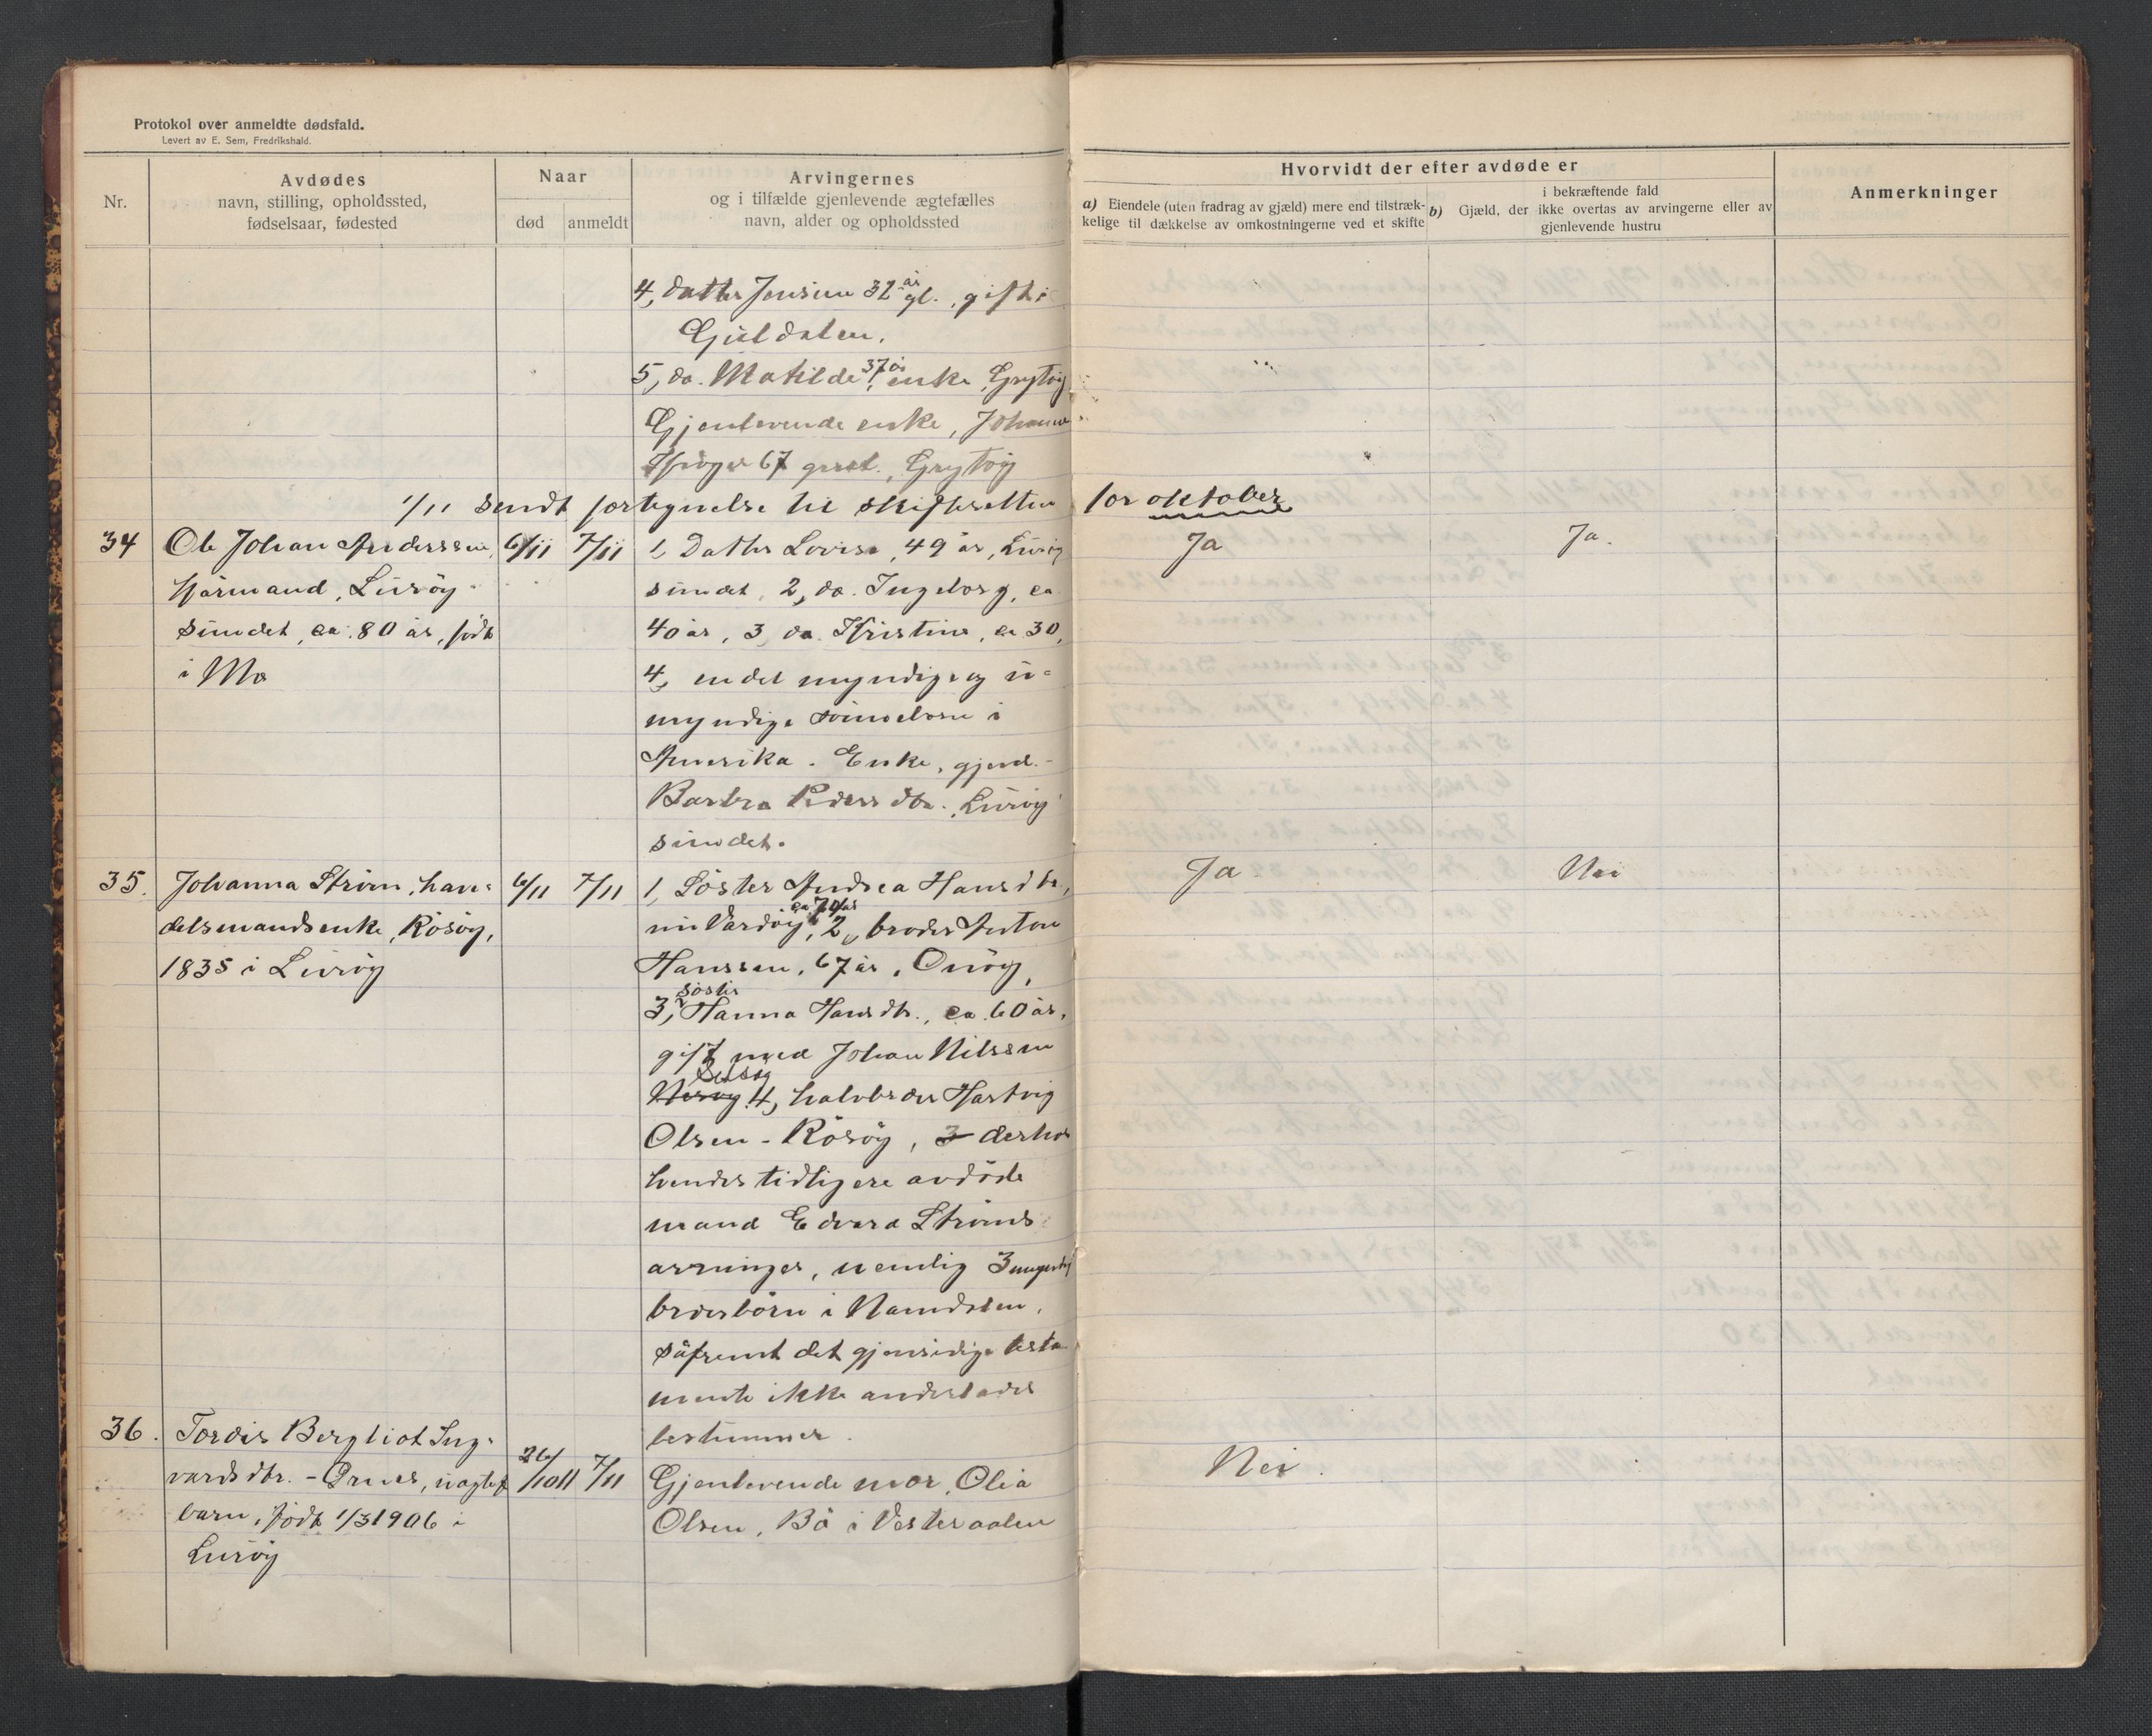 Protokol over anmeldte dødsfald.
Levert av E. Sem, Fredrikshald.
Nr.
Avdødes
navn, stilling, opholdssted,
fødselsaar, fødested
Naar
død
anmeldt
Arvingernes
og i tilfælde gjenlevende ægtefælles
navn, alder og opholdssted
Hvorvidt der efter avdøde er
a) Eiendele (uten fradrag av gjæld) mere end tilstræk-
kelige til dækkelse av omkostningerne ved et skifte
b) Gjæld, der
i bekræftende fald
ikke overtas av arvingerne eller av
gjenlevende hustru
Anmerkninger
4, datter Jensine 32 år gl., gift i
Guldalen.
5, do. Matilde, 37 år enke, Grytøy
Gjenlevende enke, Johanna
67 Grytøy
1/11 sendt fortegnelse til skifteretten for oktober
34 Ole Johan Anderssen,
kårmand, Lurøy-
sundet, ca. 80 år, født
i Mo
6/11 7/11
1, Datter Lovise, 49 år, Lurøy
sundet, 2, do. Ingeborg, ca
40 år, 3, do. Kristine, ca 30,
4, en del myndige og u=
myndige sønnebørn i
Amerika. Enke, gjenl.-
Barbra Pedersdtr. Lurøy
sundet.
Ja
Ja.
35. Johanna Strøm, han=
delsmandsenke, Rösöy,
1835 i Luröy
6/11 7/11
1, Söster Andrea Hansdtr,
ca 70 år
2, broder Anton
Hanssen, 67 år, Onöy,
3, söster Hanna Hansdtr., ca. 60 år,
gift med Johan Nilssen
Selsöy
4, halvbroder Hartvig
Olsen - Rösöy, 3 derhos
hendes tidligere avdöde
mand Edvard Ströms
arvinger, nemlig 3
brorsbörn i Namdalen,
såfremt det gjensidige testa
mente ikke anderledes
bestemmer.
Ja
Nei
36. Tordis Bergliot Ing=
vardsdtr. - Ørnes, uægte
barn, född 1/3 1906 i
Luröy
26/10 11 7/11
Gjenlevende mor, Olia
Olsen, Bö i Vesteraalen
Nei.